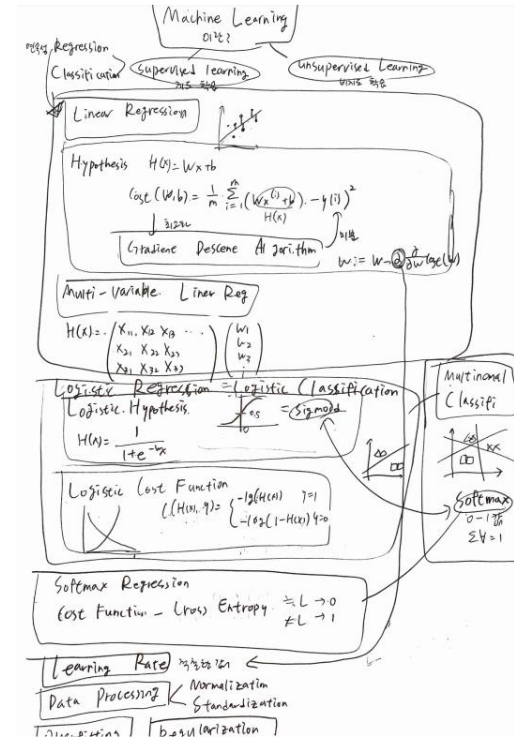 Machine Learning
이란?
연속성 Regression
Classification
supervised learning
지도 학습
unsupervised Learning
비지도 학습
Linear Regression
Hypothesis H(x) = Wx+b
Cost (W,b) = 1/m Σ i=1 m (Wx^(i)+b) - y(i))²
H(x)
Gradiene Descene Algorithm
미분
W := W - α ∂/∂W cost(W)
Multi-Variable Linear Reg
H(x) = (X11, X12 X13 ... (W1
X21 X22 X23
X31 X32 X33 W3
Logistic Regression = Logistic Classification
Logistic Hypothesis = Sigmoid
0.5
H(x) = 1/1+e^-Wx
Logistic Cost Function
C(H(x), y) = -log(H(x)) y=1
-log(1-H(x)) y=0
Multinomal
Classifi
Softmax
0-1
Σy=1
Softmax Regression
Cost Function - Cross Entropy = L → 0
≠ L → 1
Learning Rate
Data Processing
Normalization
Standardization
Overfitting
Regularization